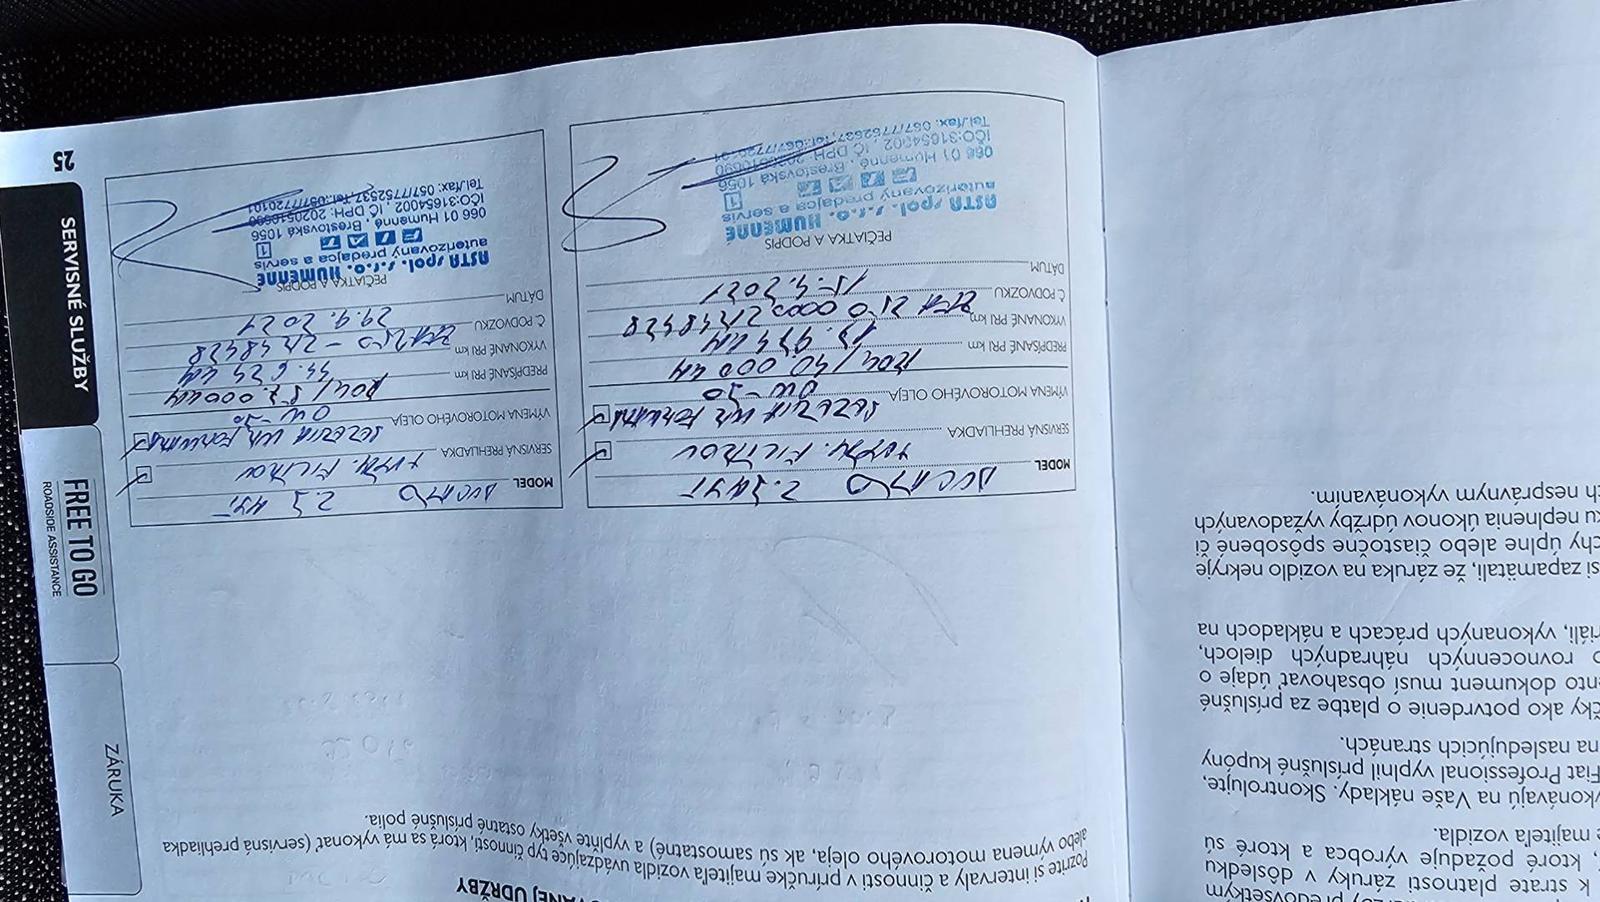 k strate platnosti záruky v dôsledku
, ktoré požaduje výrobca a ktoré sú
majiteľa vozidla.
vykonávajú na Vaše náklady. Skontrolujte,
Fiat Professional vyplnil príslušné kupóny
na nasledujúcich stranách.
čky ako potvrdenie o platbe za príslušné
ento dokument musí obsahovať údaje o
o rovnocenných náhradných dieloch,
riáli, vykonaných prácach a nákladoch na
si zapamätali, že záruka na vozidlo nekryje
chy úplne alebo čiastočne spôsobené či
ku neplnenia úkonov údržby vyžadovaných
ch nesprávnym vykonávaním.
VANEJ ÚDRŽBY
Pozrite si intervaly a činnosti v príručke majiteľa vozidla uvádzajúce typ činnosti, ktorá sa má vykonať (servisná prehliadka
alebo výmena motorového oleja, ak sú samostatné) a vyplňte všetky ostatné príslušné polia.
MODEL DUCATO 2.3 MJT
+ VÝM. FILTROV
SERVISNÁ PREHLIADKA
SELENIA WR FORWARD
VÝMENA MOTOROVÉHO OLEJA 0W-30
PREDPÍSANÉ PRI km
VYKONANÉ PRI km
Č. PODVOZKU
DÁTUM 15.4.2021
PEČIATKA A PODPIS
ASTA spol. s.r.o. HUMENNÉ
autorizovaný predajca a servis
1
066 01 Humenné, Brestovská 1056
IČO:31654002, IČ DPH: 2020510690
Tel./fax: 057/7752537, Tel.:057/7720101
MODEL DUCATO 2.3 MJT
+ VÝM. FILTROV
SERVISNÁ PREHLIADKA
SELENIA WR FORWARD
VÝMENA MOTOROVÉHO OLEJA 0W-30
PREDPÍSANÉ PRI km
VYKONANÉ PRI km
Č. PODVOZKU
DÁTUM 29.9.2021
PEČIATKA A PODPIS
ASTA spol. s.r.o. HUMENNÉ
autorizovaný predajca a servis
1
066 01 Humenné, Brestovská 1056
IČO:31654002, IČ DPH: 2020510690
Tel./fax: 057/7752537, Tel.:057/7720101
ZÁRUKA
FREE TO GO
ROADSIDE ASSISTANCE
SERVISNÉ SLUŽBY
25